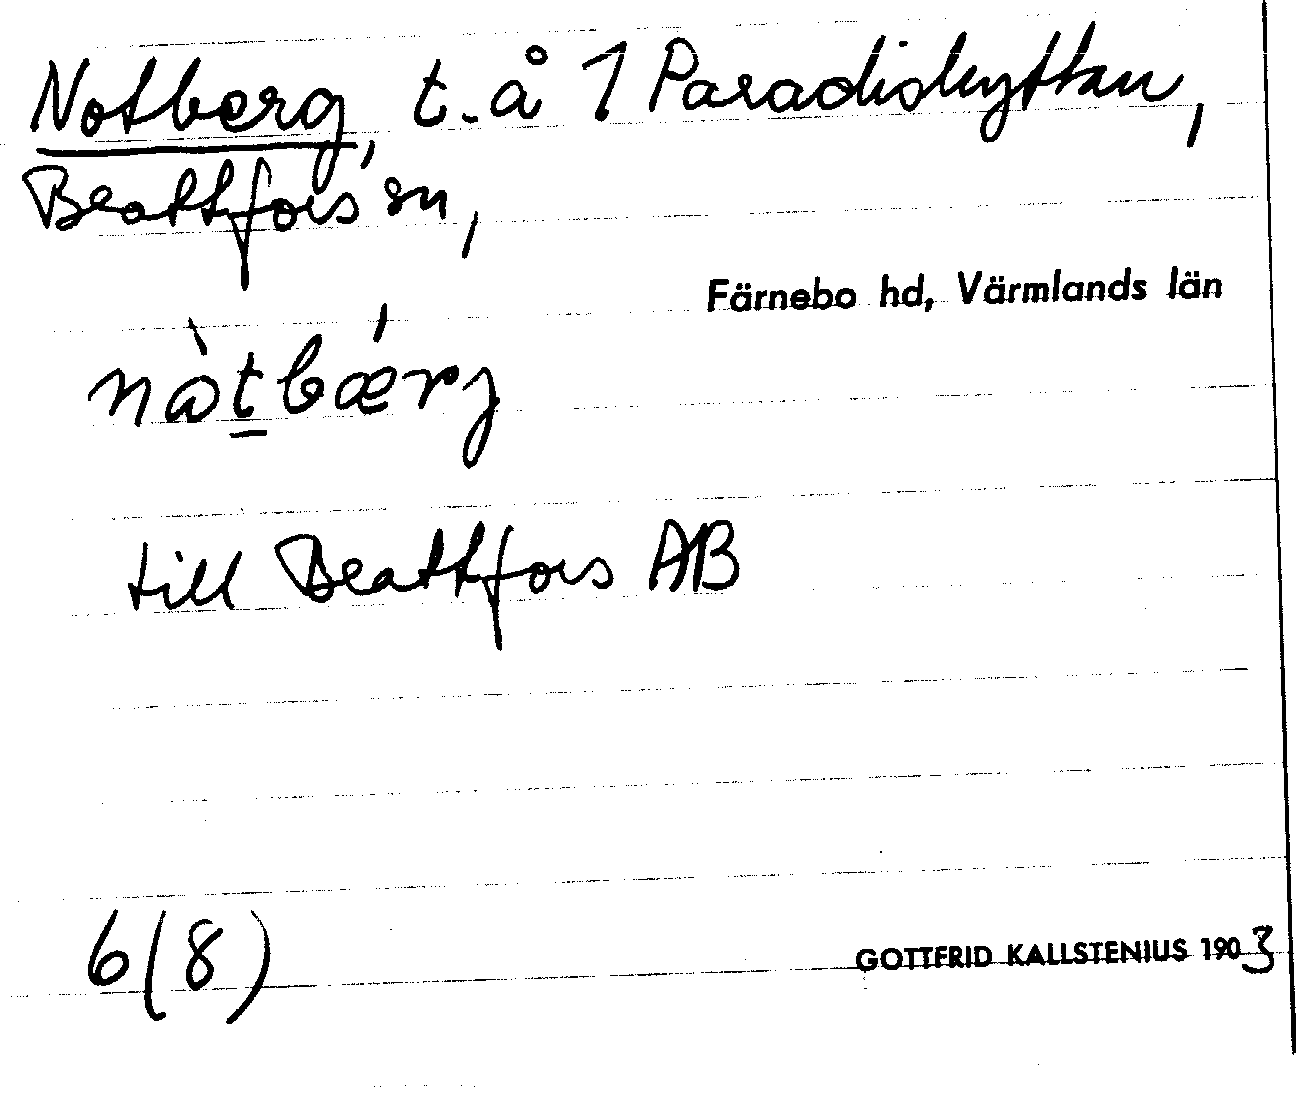 Notberg, t. å 1 Paradishyttan,
Beattfors sn,
Färnebo hd, Värmlands län
nòtbǽrj
till Beattfors AB
6(8)
GOTTFRID KALLSTENIUS 1903